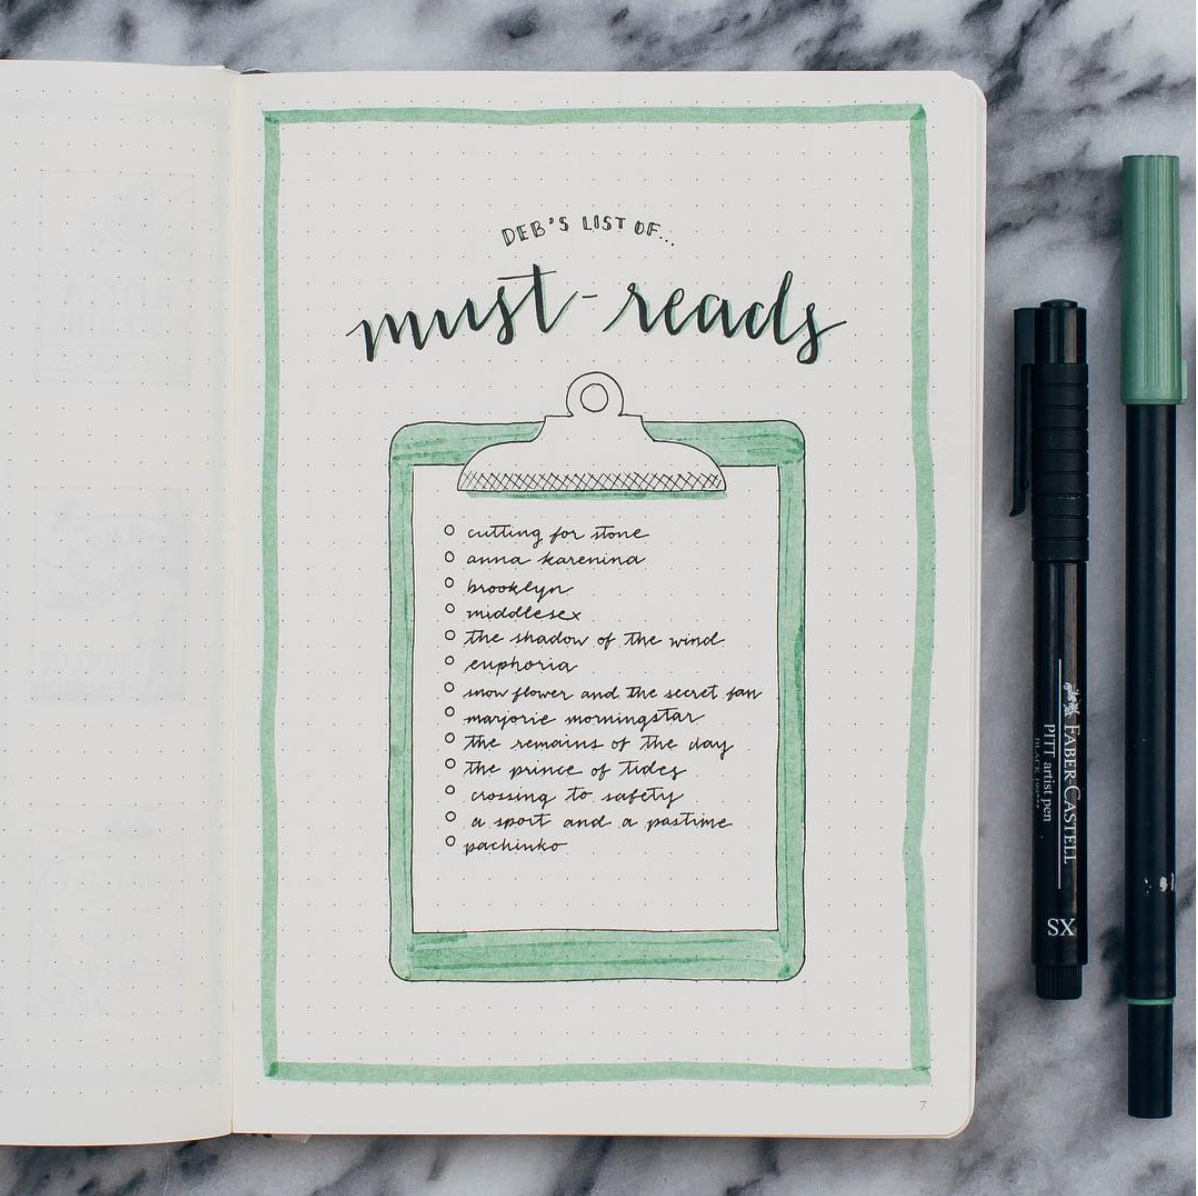 DEB'S LIST OF...
must-reads
cutting for stone
anna karenina
brooklyn
middlesex
the shadow of the wind
euphoria
snow flower and the secret fan
marjorie morningstar
the remains of the day
the prince of tides
crossing to safety
a sport and a pastime
pachinko
7
FABER-CASTELL
PITT artist pen
SX